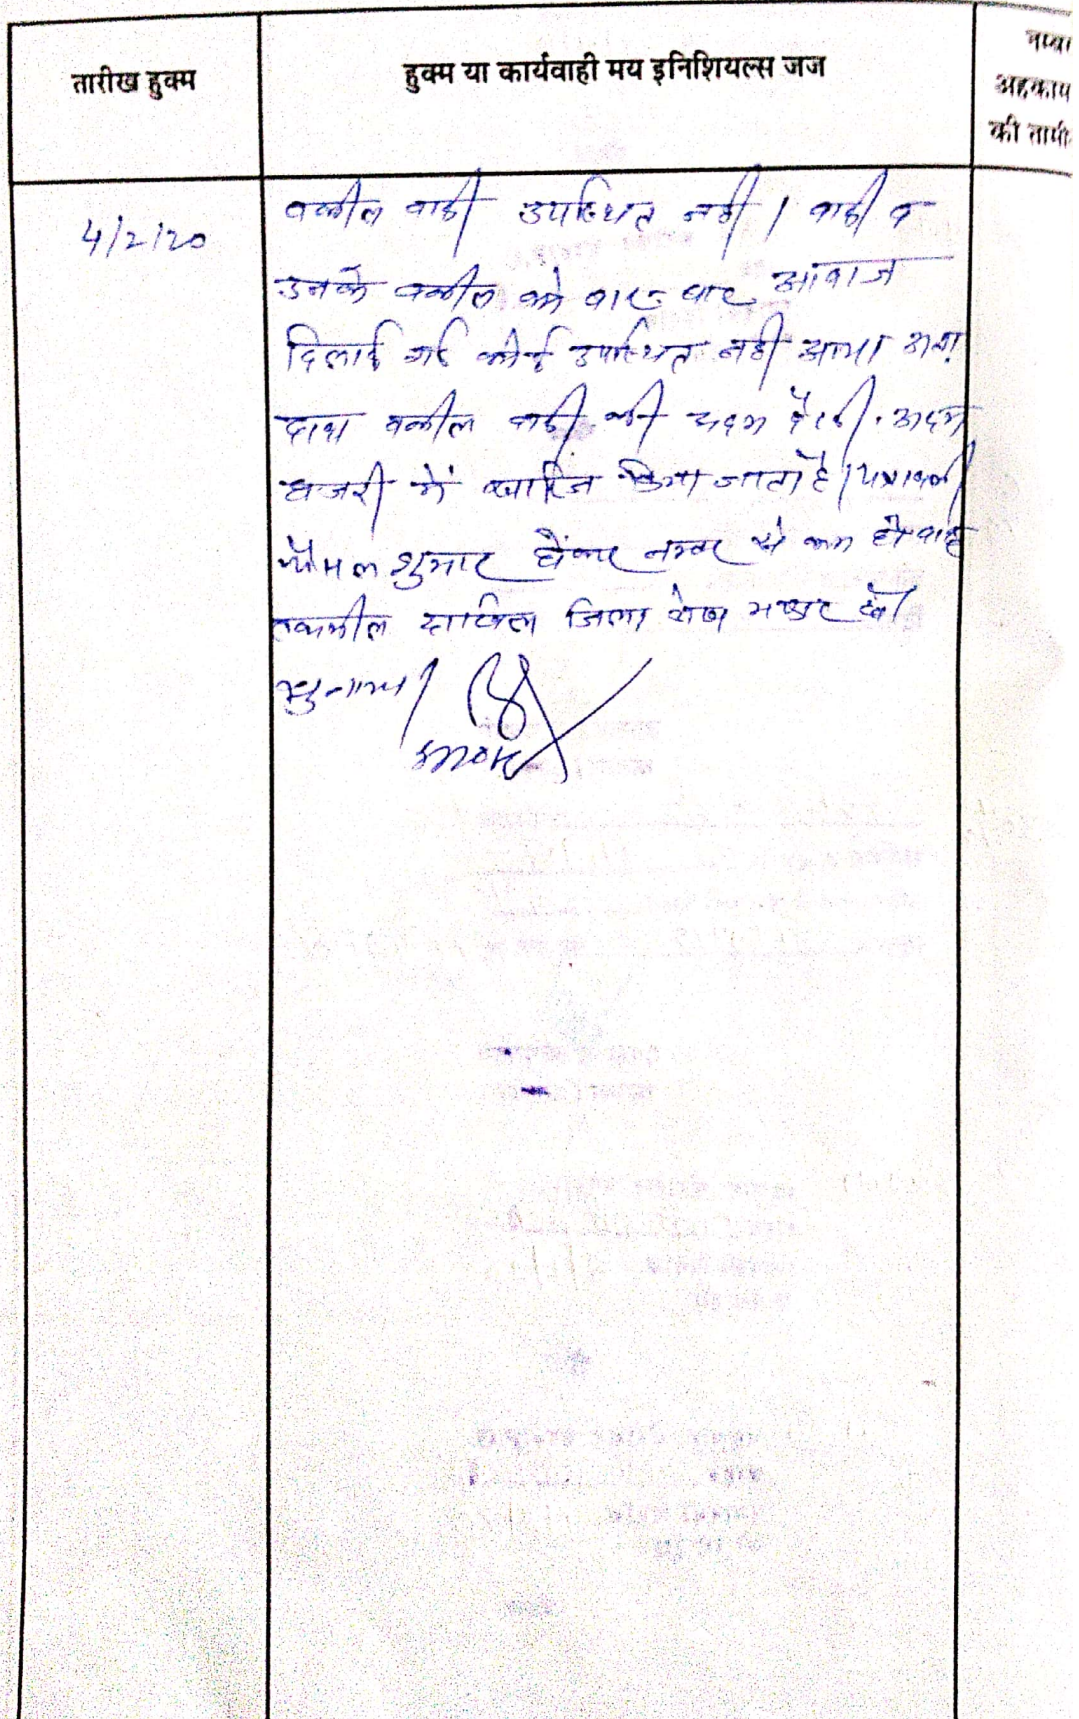 तारीख हुक्म
हुक्म या कार्यवाही मय इनिशियल्स जज
अहकाम
की तामी
4/2/20
वकील वादी उपस्थित नहीं। वादी व
उनके वकील को बार-बार आवाज
दिलाई गई कोई उपस्थित नहीं आया। अतः
दावा वकील वादी की अदम पैरवी. अदम
हाजरी में खारिज किया जाता है। पत्रावली
फैसल शुमार होकर नम्बर से कम हो बाद
तकमील दाखिल जिला लेखा भण्डार हो।
सुनाया।